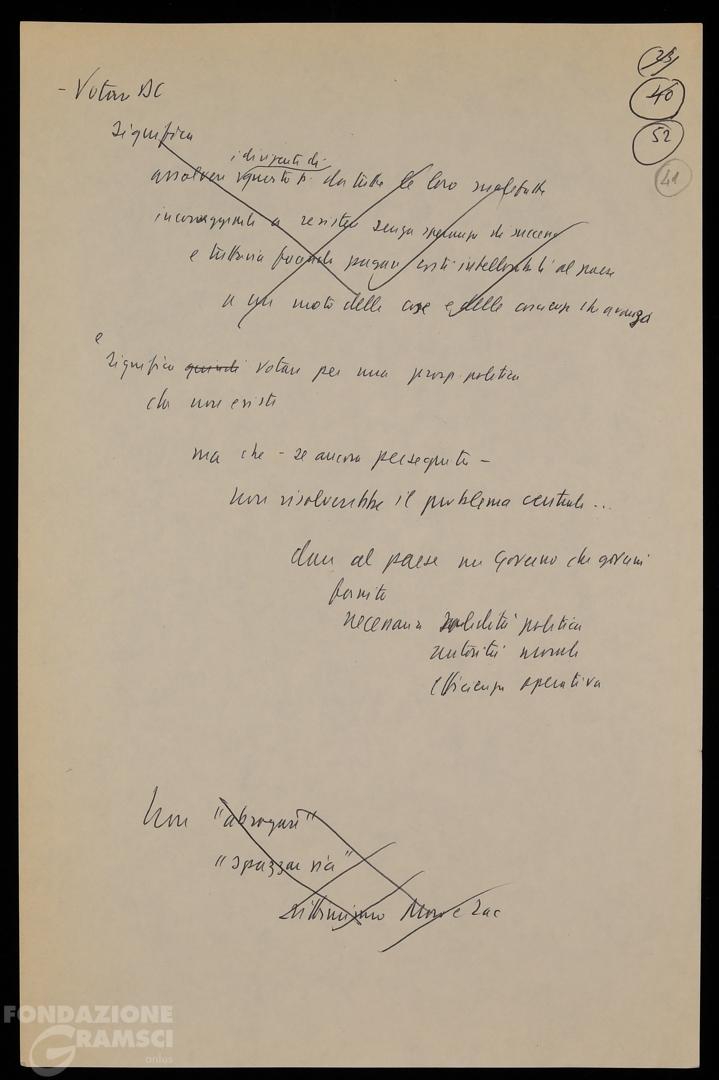 39
40
52
41
- Votare DC
significa
i dirigenti di
assolvere questo p. da tutte le loro malefatte
incoraggiarli a resistere senza speranza di successo
e tuttavia facendo pagare costi intollerabili al paese
a un moto delle cose e delle coscienze che avanza
e
significa quindi votare per una prosp. politica
che non esiste
ma che - se ancora perseguita -
non risolverebbe il problema centrale...
dare al paese un Governo che governi
fornito
necessaria solidità politica
autorità morale
efficienza operativa
Non "abrogare"
"spazzar via"
Moro e Zac
FONDAZIONE
GRAMSCI
onlus